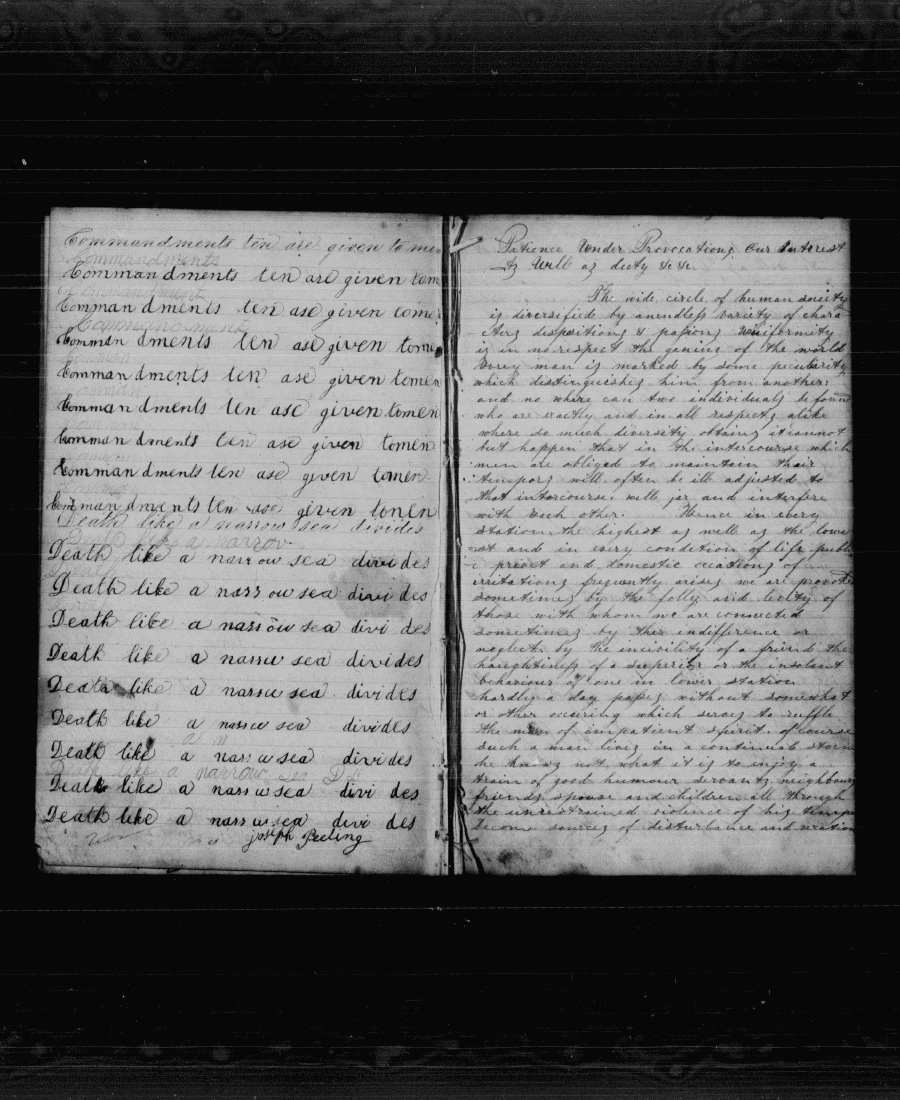 Commandments ten are given to men
Commandments
Commandments ten are given tom
Commandment
Commandments ten ase given tome
Commandment
Commandments ten ase given tome
Commandments ten ase given tomen
Commandments ten ase given tomen
Commandments ten ase given tomen
Commandments ten ase given tomen
Commandments ten ase given tonen
Death like a narrow sea divides
Death like a narrow
Death like a narrow sea divides
Death like a narrow sea divides
Death like a narrow sea divides
Death like a narrw sea divides
Death like a narrw sea divides
Death like a narrw sea divides
a n
Death like a narrw sea divides
Death like a narrow sea D
Death like a narrw sea divides
Death like a narrw sea divides
Joseph Peeling
Patience Under Provocations Our Interest
As Well as duty &c &c.
The wide circle of human society
is diversified by anendless variety of chara
cters dispositions & passions Uniformity
is in no respect the genius of the world
Every man is marked by some peculiarity
which distinguishes him from another:
and no where can two individuals be found
who are exactly and in all respects alike
where so much diversity obtains it cannot
but happen that in the intercourse which
men are obliged to maintain their
tempers will often be ill adjusted to
that intercourse: will jar and interfere
with each other. Hence in every
station the highest as well as the lowe
est and in every condition of life publi
c privet and domestic occations of
irritations frequently arises we are provoke
sometimes by the folly and levity of
those with whom we are connected
sometimes by ther indifference or
neglect by the incivility of a friend the
haughtiness of a superior or the insolent
behaviour of one in lower station
hardly a day passes without somewhat
or other occuring which serves to ruffle
the man of impatient spirit. of course
such a man lives in a continual storm
he knows not what it is to enjoy a
train of good humour servants neighbours
friends spouse and children all through
the unrestrained violence of his tempe
become sources of disturbance and vexation